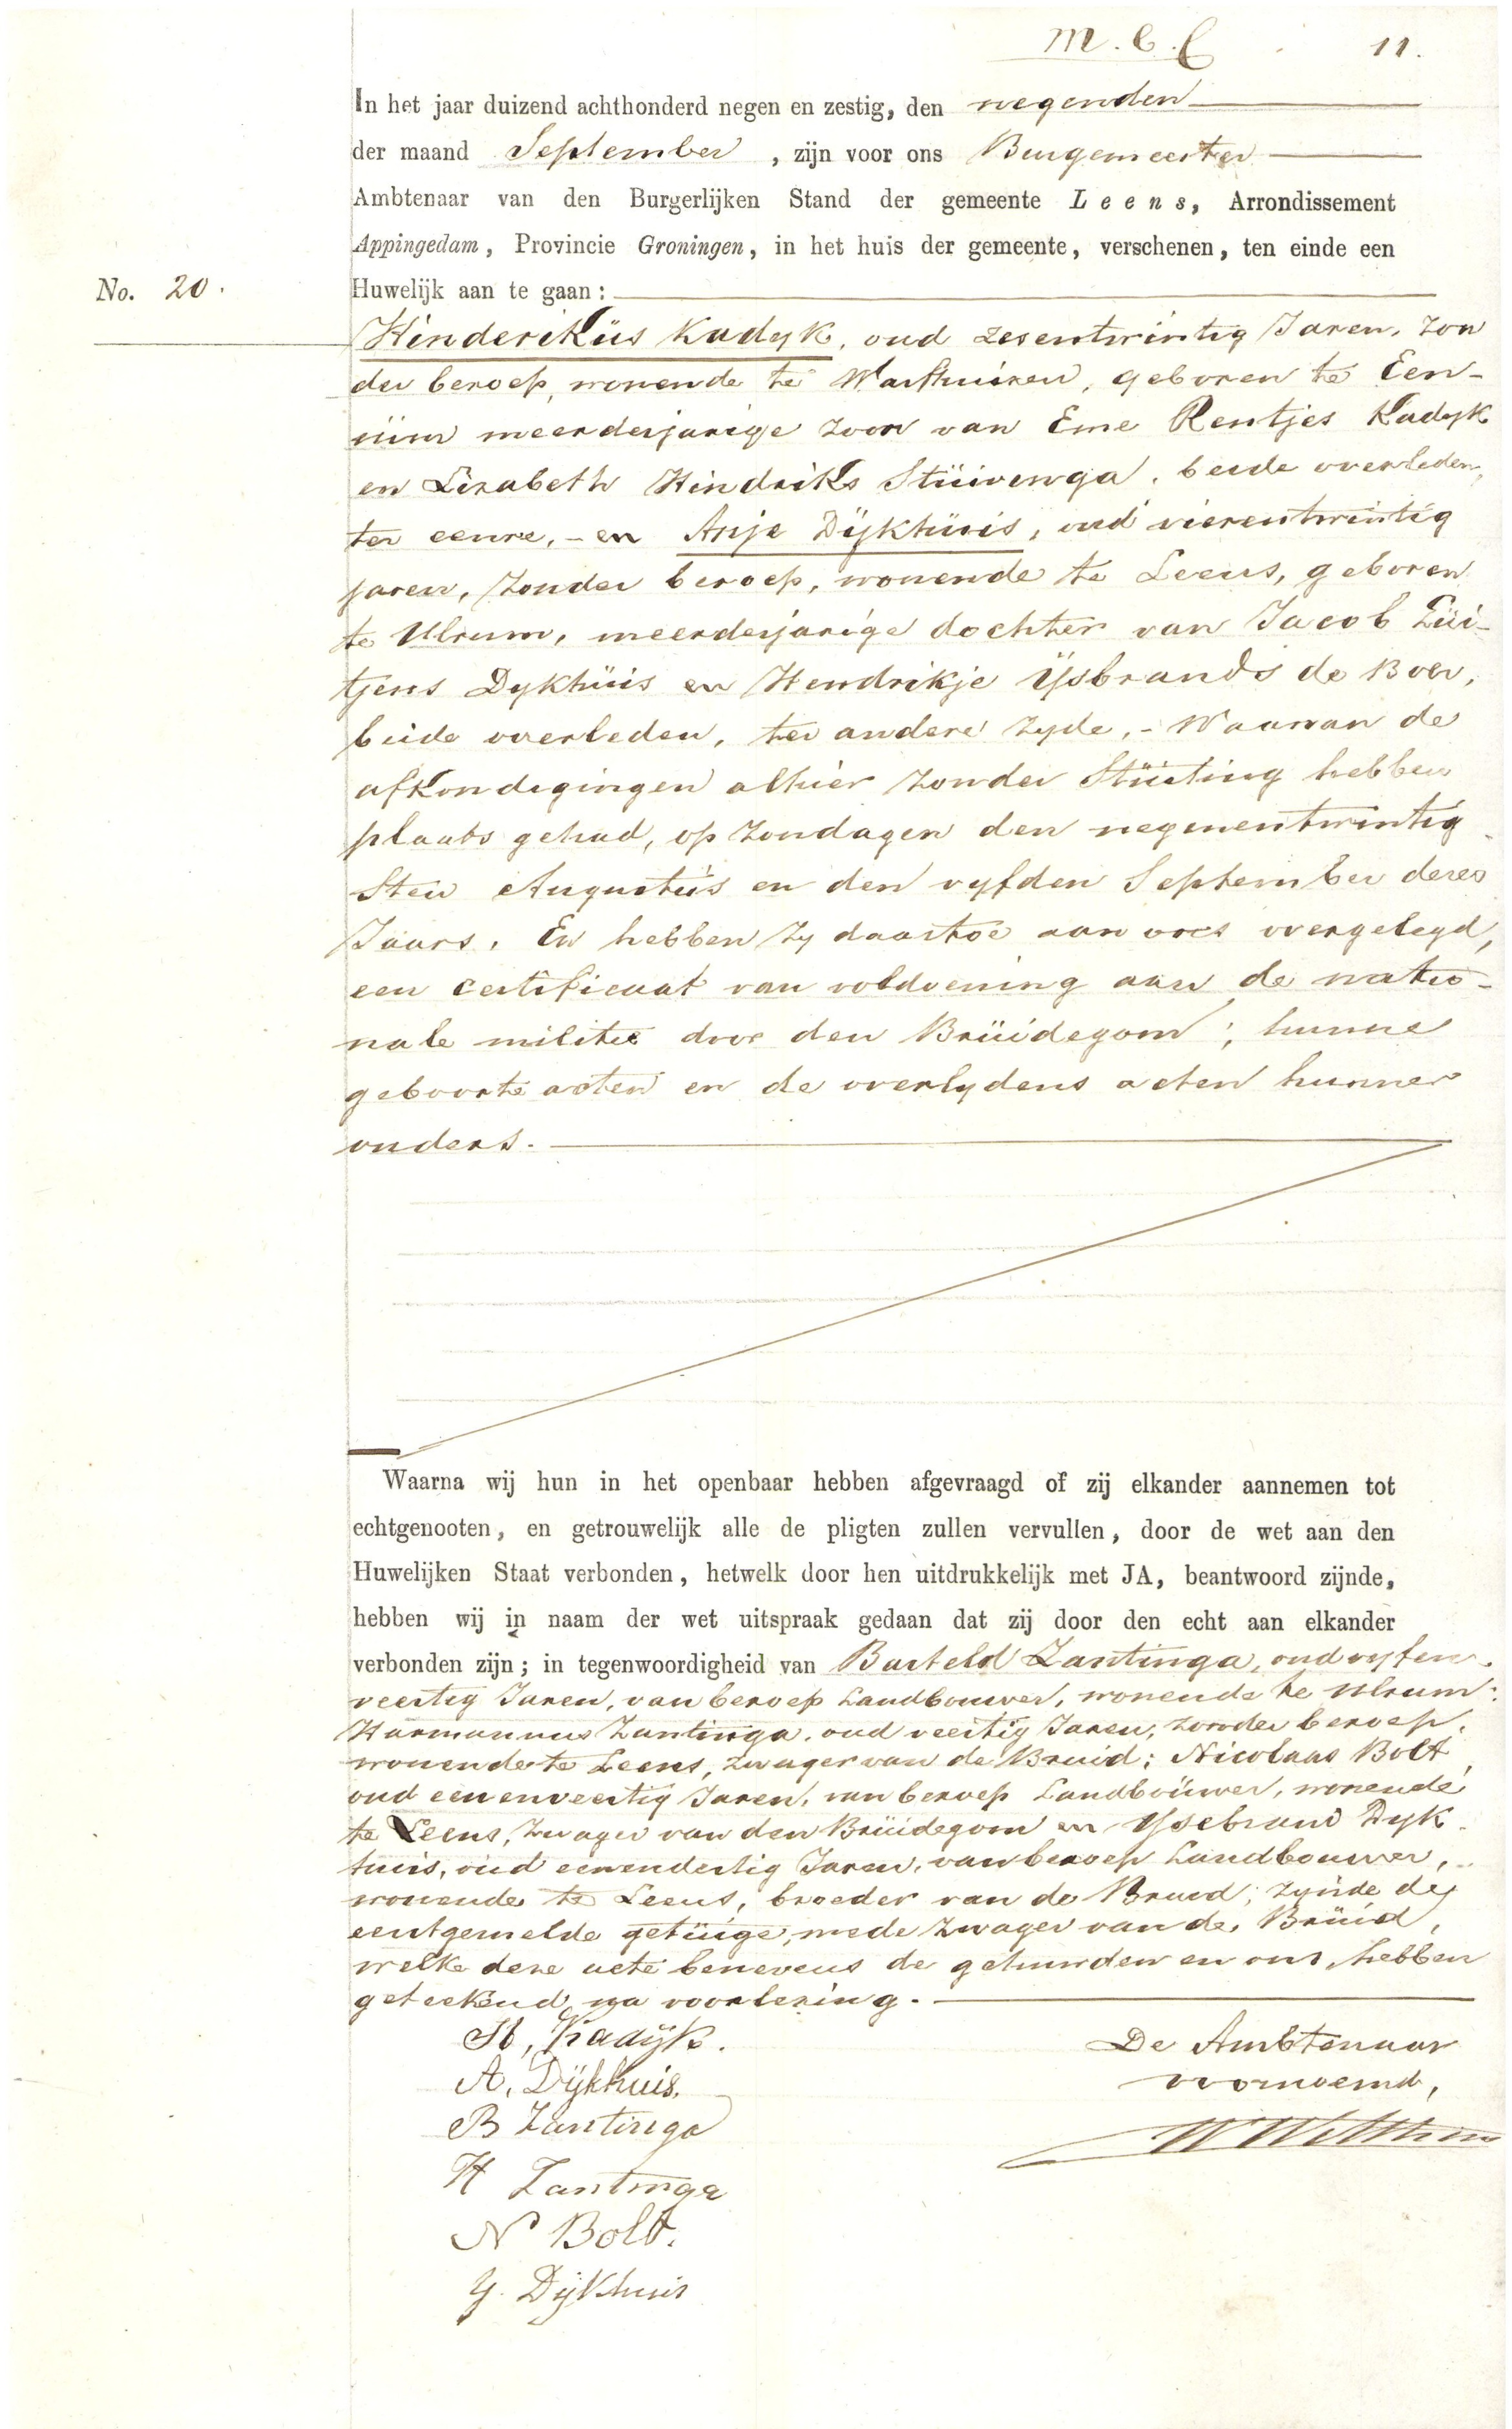 11.
In het jaar duizend achthonderd negen en zestig, den negenden
der maand September, zijn voor ons Burgemeester
Ambtenaar van den Burgerlijken Stand der gemeente Leens, Arrondissement
Appingedam, Provincie Groningen, in het huis der gemeente, verschenen, ten einde een
No. 20.
Huwelijk aan te gaan:
Hinderikus Kadyk, oud zesentwintig Jaren, zon
der beroep, wonende te Warfhuizen, geboren te Een-
rum meerderjarige zoon van Eme Rentjes Kadyk
en Lizabeth Hindriks Stuivenga, beide overleden,
ter eenre, - en Anje Dijkhuis, oud vierentwintig
jaren, zonder beroep, wonende te Leens, geboren
te Ulrum, meerderjarige dochter van Jacob Lui-
tjens Dykhuis en Hendrikje Ysbrands de Boer,
beide overleden, ter andere zyde, - Waarvan de
afkondigingen alhier zonder Stuiting hebben
plaats gehad, op zondagen den negenentwintig
sten Augustus en den vyfden September dezes
Jaars. En hebben zy daartoe aan ons overgelegd,
een certificaat van voldoening aan de natio-
nale militie door den Bruidegom; hunne
geboorte acten en de overlydens acten hunner
ouders.
Waarna wij hun in het openbaar hebben afgevraagd of zij elkander aannemen tot
echtgenooten, en getrouwelijk alle de pligten zullen vervullen, door de wet aan den
Huwelijken Staat verbonden, hetwelk door hen uitdrukkelijk met JA, beantwoord zijnde,
hebben wij in naam der wet uitspraak gedaan dat zij door den echt aan elkander
verbonden zijn; in tegenwoordigheid van Barteld Zantinga, oud vyfen
veertig Jaren, van beroep Landbouwer, wonende te Ulrum;
Harmannus Zantinga, oud veertig Jaren, zonder beroep,
wonende te Leens, zwager van de Bruid; Nicolaas Bolt
oud eenenveertig Jaren, van beroep Landbouwer, wonende
te Leens, zwager van den Bruidegom en Ysebrand Dyk
huis, oud eenendertig Jaren, van beroep Landbouwer,
wonende te Leens, broeder van de Bruid; zynde de
eerstgemelde getuige, mede zwager van de Bruid,
welke deze acte benevens de gehuwden en ons, hebben
geteekend na voorlezing.
H, Kadijk.
A, Dijkhuis.
B Zantinga
H Zantinga
N Bolt.
Y. Dijkhuis
De Ambtenaar
voornoemd,